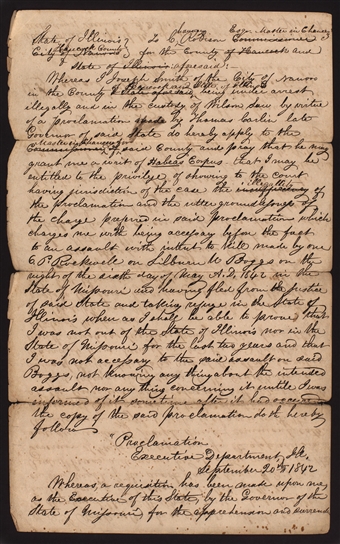 State of Illinois } To C. Esqr. Master in Chancery
Hancock County
City of Nauvoo } for the County of Hancock and
State of Illinois aforesaid:
Whereas I Joseph Smith of the City of Nauvoo
in the County of Hancock and State of being under arrest
illegally and in the custody of Wilson Law by virtue
of a Proclamation made by Thomas Carlin late
Governor of said State do hereby apply to the
Master in Chancery
of said County and pray that he may
grant me a writ of Habeas Corpus that I may be
entitled to the privilege of showing to the court
illegality
having jurisdiction of the case the of
the proclamation and the utter groundlessness of
the charge prefered in said Proclamation which
charges me with being accessary before the fact
to an assault with intent to kill made by one
O P. Rockwell on Lilburn W Boggs on the
night of the sixth day of May A.D. 1842 in the
State of Missouri and having fled from the justice
of said State and taking refuge in the State of
Illinois when as I shall be able to prove that
I was not out of the State of Illinois nor in the
State of Missouri for the last two years and that
I was not accessary to the said assault on said
Boggs, not knowing any thing about the intended
assault nor any thing concerning it until I was
informed of it some time after it had
the copy of the said proclamation doth hereby
follow
Proclamation
Executive Department, Ill.
September 20th 1842
Whereas, a requisition has been made upon me,
as the Executive of this State, by the Governor of the
State of Missouri for the apprehension and surrender